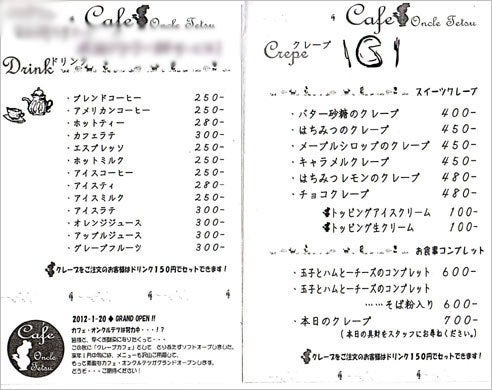 Cafe Oncle Tetsu
Drink ドリンク
・ブレンドコーヒー 250-
・アメリカンコーヒー 250-
・ホットティー 280-
・カフェラテ 300-
・エスプレッソ 250-
・ホットミルク 250-
・アイスコーヒー 250-
・アイスティ 280-
・アイスミルク 250-
・アイスラテ 300-
・オレンジジュース 300-
・アップルジュース 300-
・グレープフルーツ 300-
クレープをご注文のお客様はドリンク150円でセットできます!
Cafe Oncle Tetsu
2012・1・20 ◆ GRAND OPEN !!
カフェ・オンクルテツは努力中・・・!?
どうぞ・・ご期待ください!
Cafe Oncle Tetsu
Crepe クレープ
スイーツクレープ
・バター砂糖のクレープ 400-
・はちみつのクレープ 450-
・メープルシロップのクレープ 450-
・キャラメルクレープ 450-
・はちみつレモンのクレープ 480-
・チョコクレープ 480-
トッピングアイスクリーム 100-
トッピング生クリーム 100-
お食事コンプレット
・玉子とハムとチーズのコンプレット 600-
・玉子とハムとチーズのコンプレット
……そば粉入り 600-
・本日のクレープ 700-
(本日の具財をスタッフにお尋ねください。)
クレープをご注文のお客様はドリンク150円でセットできます!